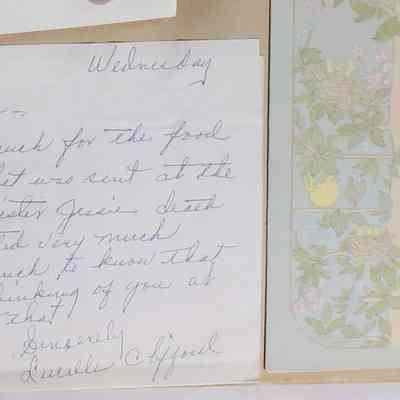 Wednesday
much for the food
that was sent at the
sister Jessie death
very much
much to know that
thinking of you at
that
Sincerely
Lucille